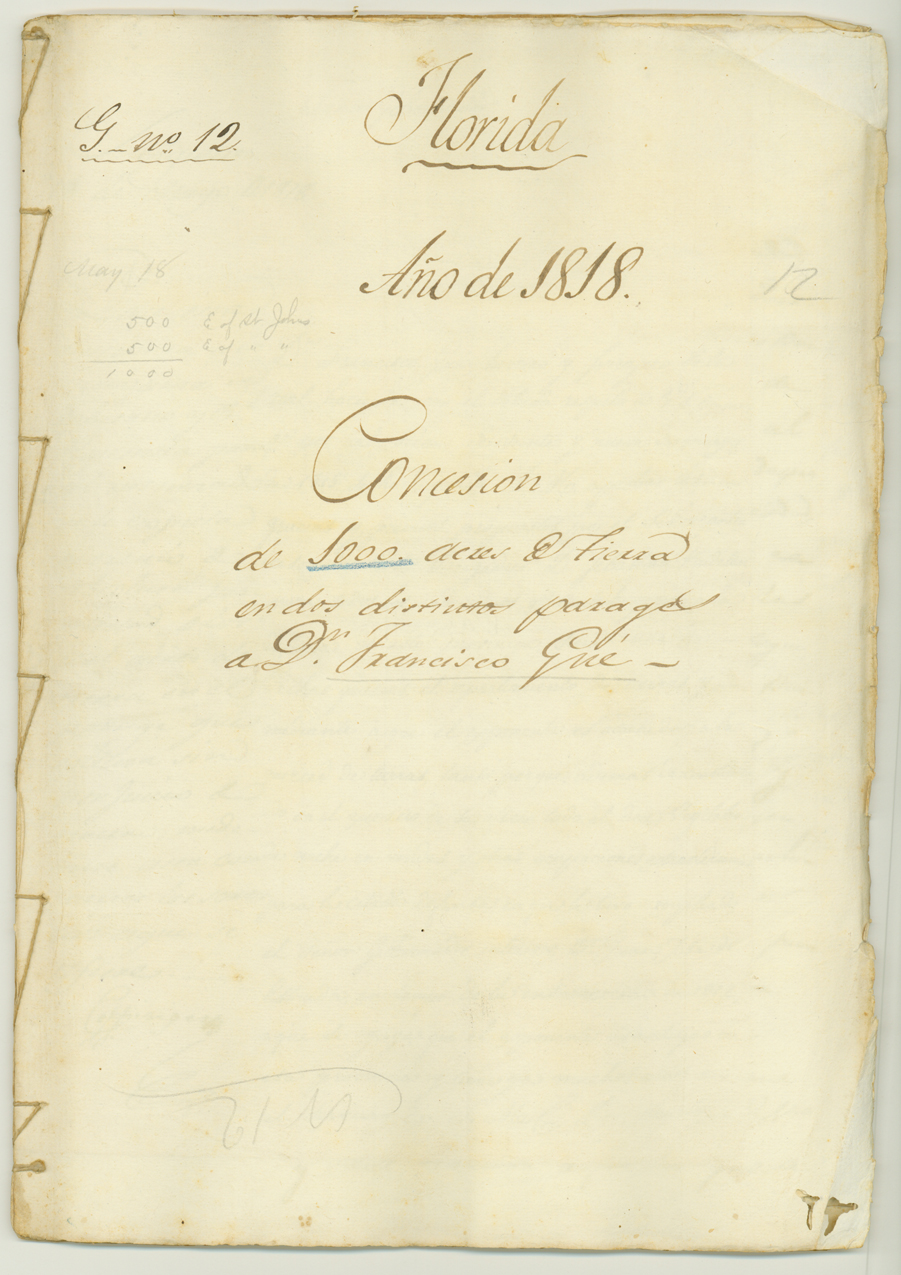 G. no. 12.
Florida
May 18
Año de 1818.
12
500 E of St Johns
500 E of " "
1000
Concesion
de 1000. acres de tierra
en dos distintos parages
a Dn. Francisco Gué